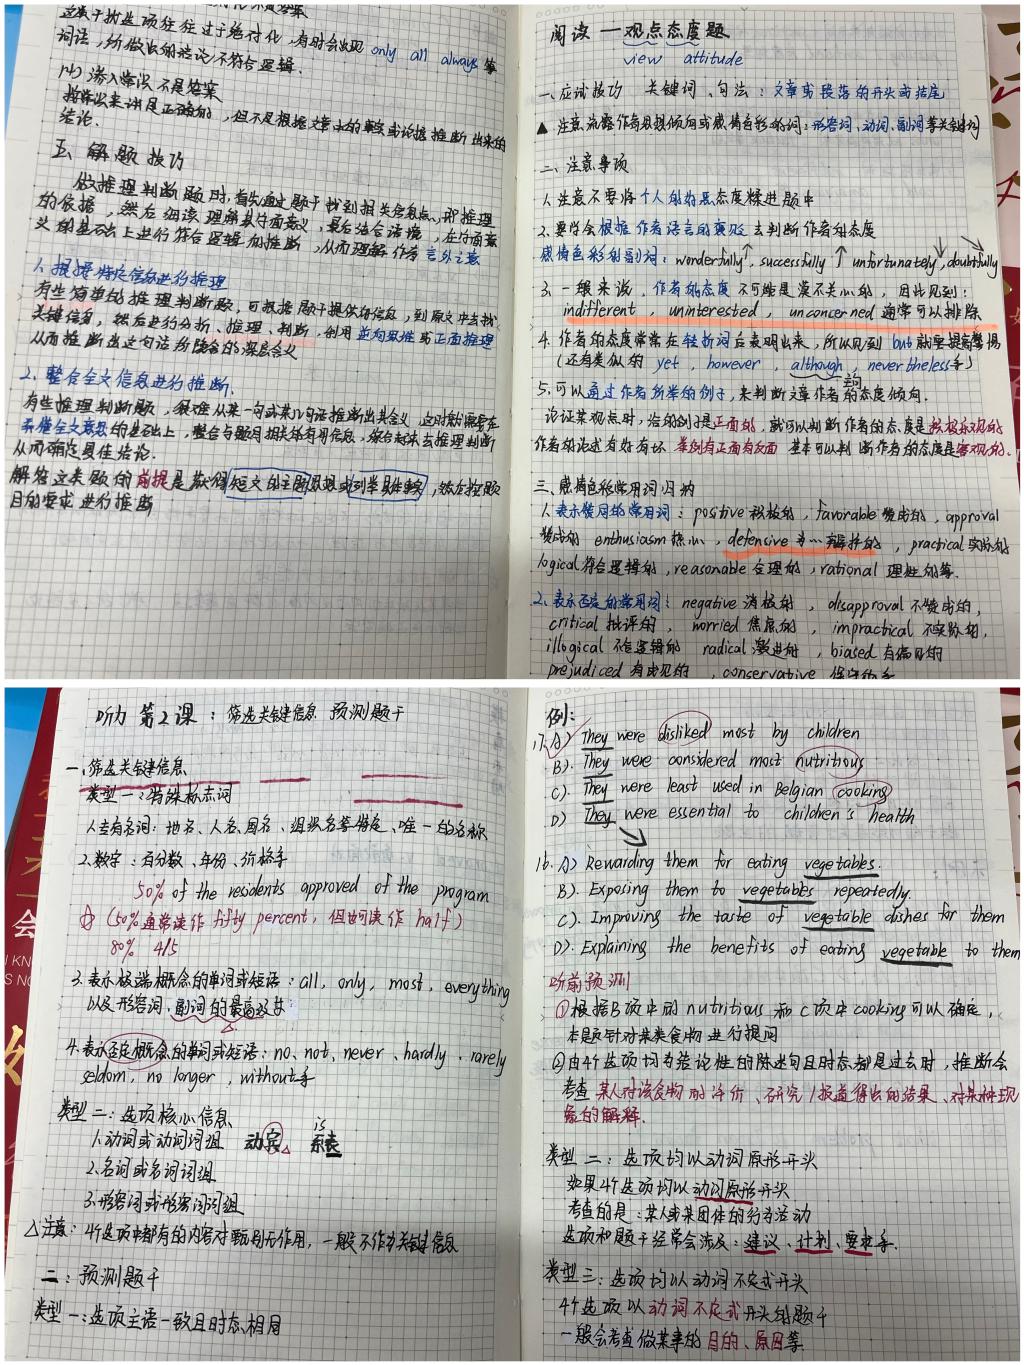 这类干扰选项往往过于绝对化,有时会出现 only all always 等
词语,所做出的结论不符合逻辑.
渗入常识不是答案
按常识来讲是正确的,但不是根据文章中的事实或论据推断出来的
结论.
五、解题技巧
做推理判断题时,首先通过题干找到相关信息点,即推理
的依据,然后细读理解其字面意义,最后结合语境,在字面意
义的基础上进行符合逻辑的推断,从而理解作者言外之意
1.根据特定信息进行推理
有些简单的推理判断题,可根据题干提供的信息,到原文中去找
关键信息,然后进行分析、推理、判断,利用逆向思维或正面推理
从而推断出这句话所隐含的深层含义
2.整合全文信息进行推断.
有些推理判断题,很难从某一句或某几句话推断出其含义,这时就需要在
弄懂全文意思的基础上,整合与题目相关的有用信息,综合起来去推理判断
从而确定最佳结论.
解答这类题的前提是获得短文的主题思想或列举具体事实,然后按题
目的要求进行推断
阅读一观点态度题
view attitude
一、应试技巧 关键词、句法:文章或段落的开头或结尾
▲ 注意流露作者思想倾向或感情色彩的词:形容词、动词、副词等关键词
二、注意事项
1.注意不要将个人的好恶态度糅进题中
2.要学会根据作者语言的褒贬去判断作者的态度
感情色彩的副词:wonderfully↑, successfully↑ unfortunately↓, doubtfully↘
3.一般来说,作者的态度不可能是漠不关心的,因此见到:
indifferent , uninterested , unconcerned 通常可以排除
4.作者的态度常常在转折词后表明出来,所以见到but就要提高警惕
(还有类似的 yet , however , although , nevertheless等)
5.可以通过作者所举的例子,来判断文章作者的态度倾向.
论证某观点时,给的例子是正面的,就可以判断作者的态度是积极乐观的.
作者的论述有好有坏,举例有正面有反面 基本可以判断作者的态度是客观的.
三、感情色彩常用词归纳
1.表示赞同的常用词:positive 积极的 , favorable 赞成的 , approval
赞成的 enthusiasm 热心 , defensive 为…辩护的 , practical 实际的
logical 符合逻辑的 , reasonable 合理的 , rational 理性的等.
2.表示否定的常用词:negative 消极的 , disapproval 不赞成的,
critical 批评的 , worried 焦虑的 , impractical 不实际的,
illogical 不合逻辑的 radical 激进的 , biased 有偏见的
prejudiced 有成见的 , conservative 保守的等
听力 第2课:筛选关键信息 预测题干
一、筛选关键信息
类型一:特殊标志词
1.专有名词:地名、人名、国名、组织名等特定、唯一的名称
2.数字:百分数、年份、价格等
50% of the residents approved of the program
(50%通常读作 fifty percent, 但也可读作 half)
80% 4/5
3.表示极端概念的单词或短语:all, only, most, everything
以及形容词、副词的最高级等
4.表示否定概念的单词或短语:no, not, never, hardly, rarely
seldom, no longer, without等
类型二:选项核心信息
is
1.动词或动词词组 动宾△ 系表
2.名词或名词词组
3.形容词或形容词词组
△注意:4个选项中都有的内容对甄别无作用,一般不作为关键信息
二:预测题干
类型一:选项主语一致且时态相同
例:
17.A) They were disliked most by children
B). They were considered most nutritious
C). They were least used in Belgian cooking
D) They were essential to children's health
16. A) Rewarding them for eating vegetables.
B). Exposing them to vegetables repeatedly.
C). Improving the taste of vegetable dishes for them
D). Explaining the benefits of eating vegetable to them
听前预测
①根据B项中的nutritious和C项中cooking可以确定,
本题针对某类食物进行提问
②由4个选项均为结论性的陈述句且时态都是过去时,推断会
考查某人对该食物的评价、研究/报道得出的结果、对某种现
象的解释.
类型二:选项均以动词原形开头
如果4个选项均以动词原形开头
考查的是:某人或某团体的行为活动
选项和题干经常会涉及:建议、计划、要求等.
类型三:选项均以动词不定式开头
4个选项以动词不定式开头的题干
一般会考查做某事的目的、原因等.